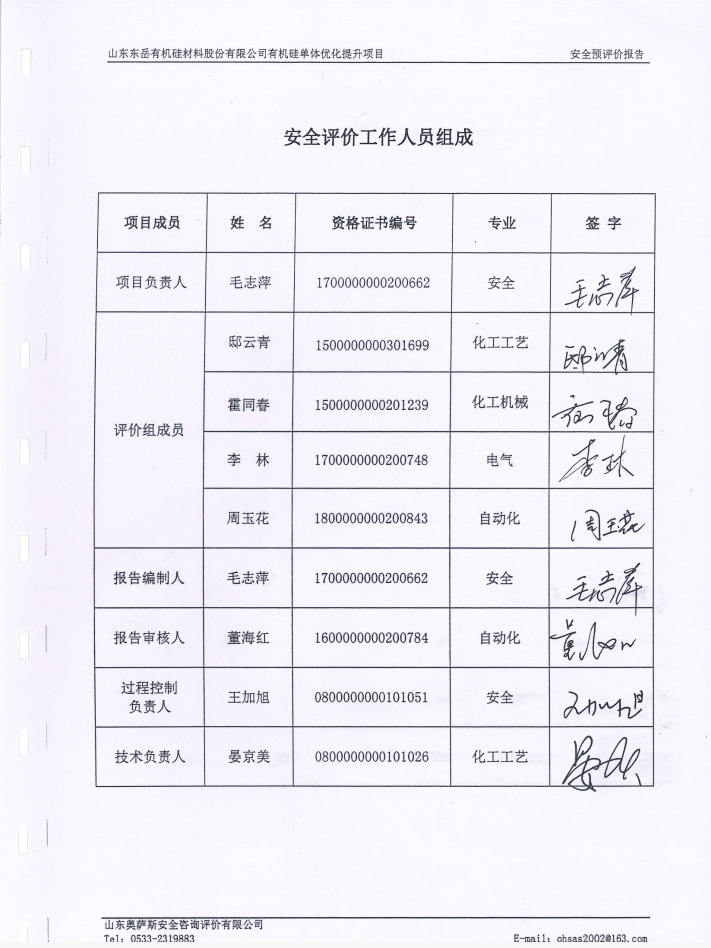 山东东岳有机硅材料股份有限公司有机硅单体优化提升项目 安全预评价报告
安全评价工作人员组成
项目成员 姓 名 资格证书编号 专业 签 字
项目负责人 毛志萍 1700000000200662 安全 毛志萍
评价组成员 邸云青 1500000000301699 化工工艺 邸云青
霍同春 1500000000201239 化工机械
李 林 1700000000200748 电气 李林
周玉花 1800000000200843 自动化 周玉花
报告编制人 毛志萍 1700000000200662 安全 毛志萍
报告审核人 董海红 1600000000200784 自动化
过程控制
负责人 王加旭 0800000000101051 安全
技术负责人 晏京美 0800000000101026 化工工艺
山东奥萨斯安全咨询评价有限公司
Tel: 0533-2319883 E-mail: ohsas2002@163.com